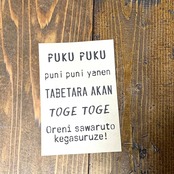 PUKU PUKU
puni puni yanen
TABETARA AKAN
TOGE TOGE
Oreni sawaruto
kegasuruze!